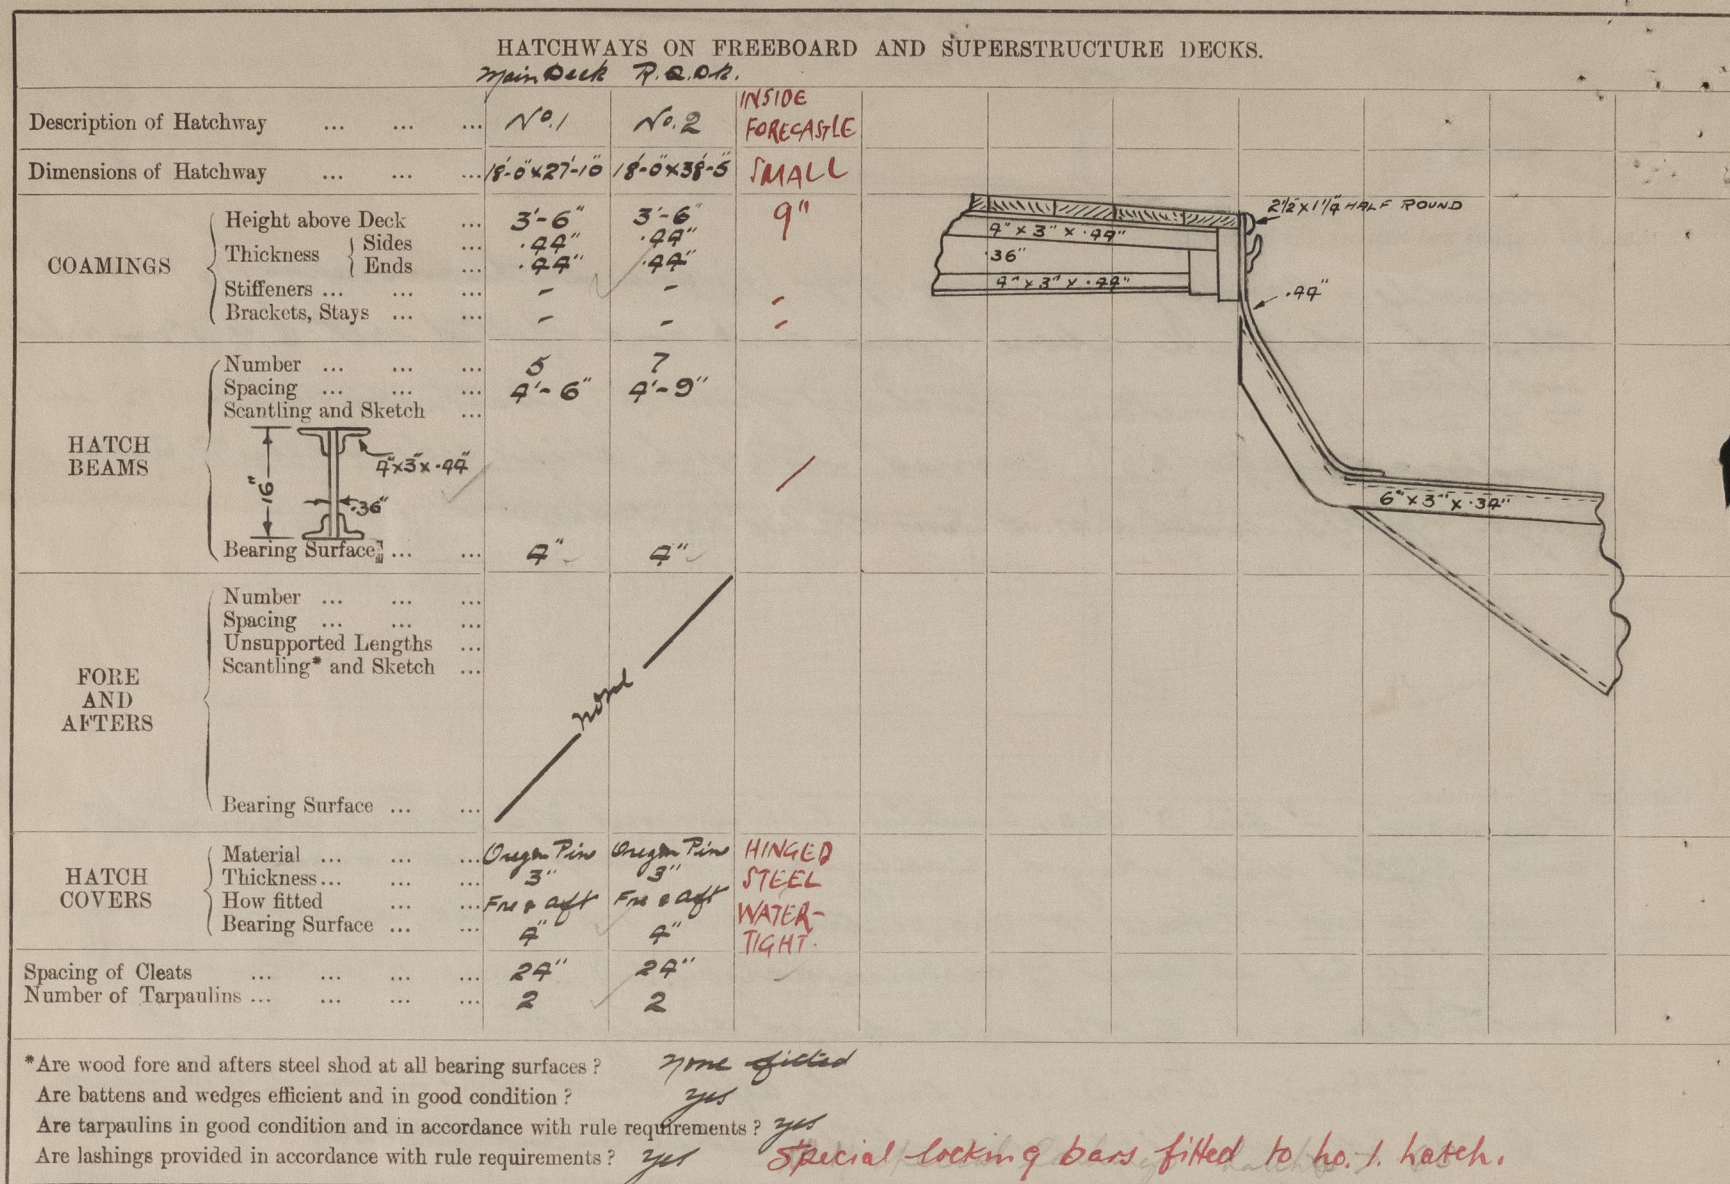 HATCHWAYS ON FREEBOARD AND SUPERSTRUCTURE DECKS.
Main Deck R.Q.DK.
Description of Hatchway ... ... ... No. 1 No. 2 INSIDE FORECASTLE
Dimensions of Hatchway ... ... ... 18'-0"x27'-10" 18'-0"x38'-5" SMALL
COAMINGS
Height above Deck ... 3'-6" 3'-6" 9"
Thickness Sides ... .44" .44"
Ends ... .44" .44"
Stiffeners ... ... ... - - -
Brackets, Stays ... ... - - -
2½"x1¼" HALF ROUND
4" x 3" x .44"
.36"
4" x 3" x .44"
.44"
6" x 3" x .34"
HATCH BEAMS
Number ... ... ... 5 7
Spacing ... ... ... 4'-6" 4'-9"
Scantling and Sketch ...
4"x3"x.44"
16"
.36"
Bearing Surface ... ... 4" 4"
FORE AND AFTERS
Number ... ... ...
Spacing ... ... ...
Unsupported Lengths ...
Scantling* and Sketch ...
none
Bearing Surface ... ...
HATCH COVERS
Material ... ... ... Oregon Pine Oregon Pine HINGED
Thickness... ... ... 3" 3" STEEL
How fitted ... ... Fre & aft Fre & aft WATER-
Bearing Surface ... ... 4" 4" TIGHT.
Spacing of Cleats ... ... ... ... 24" 24"
Number of Tarpaulins ... ... ... ... 2 2
*Are wood fore and afters steel shod at all bearing surfaces? none fitted
Are battens and wedges efficient and in good condition? yes
Are tarpaulins in good condition and in accordance with rule requirements? yes
Are lashings provided in accordance with rule requirements? yes Special locking bars fitted to no. 1. hatch.